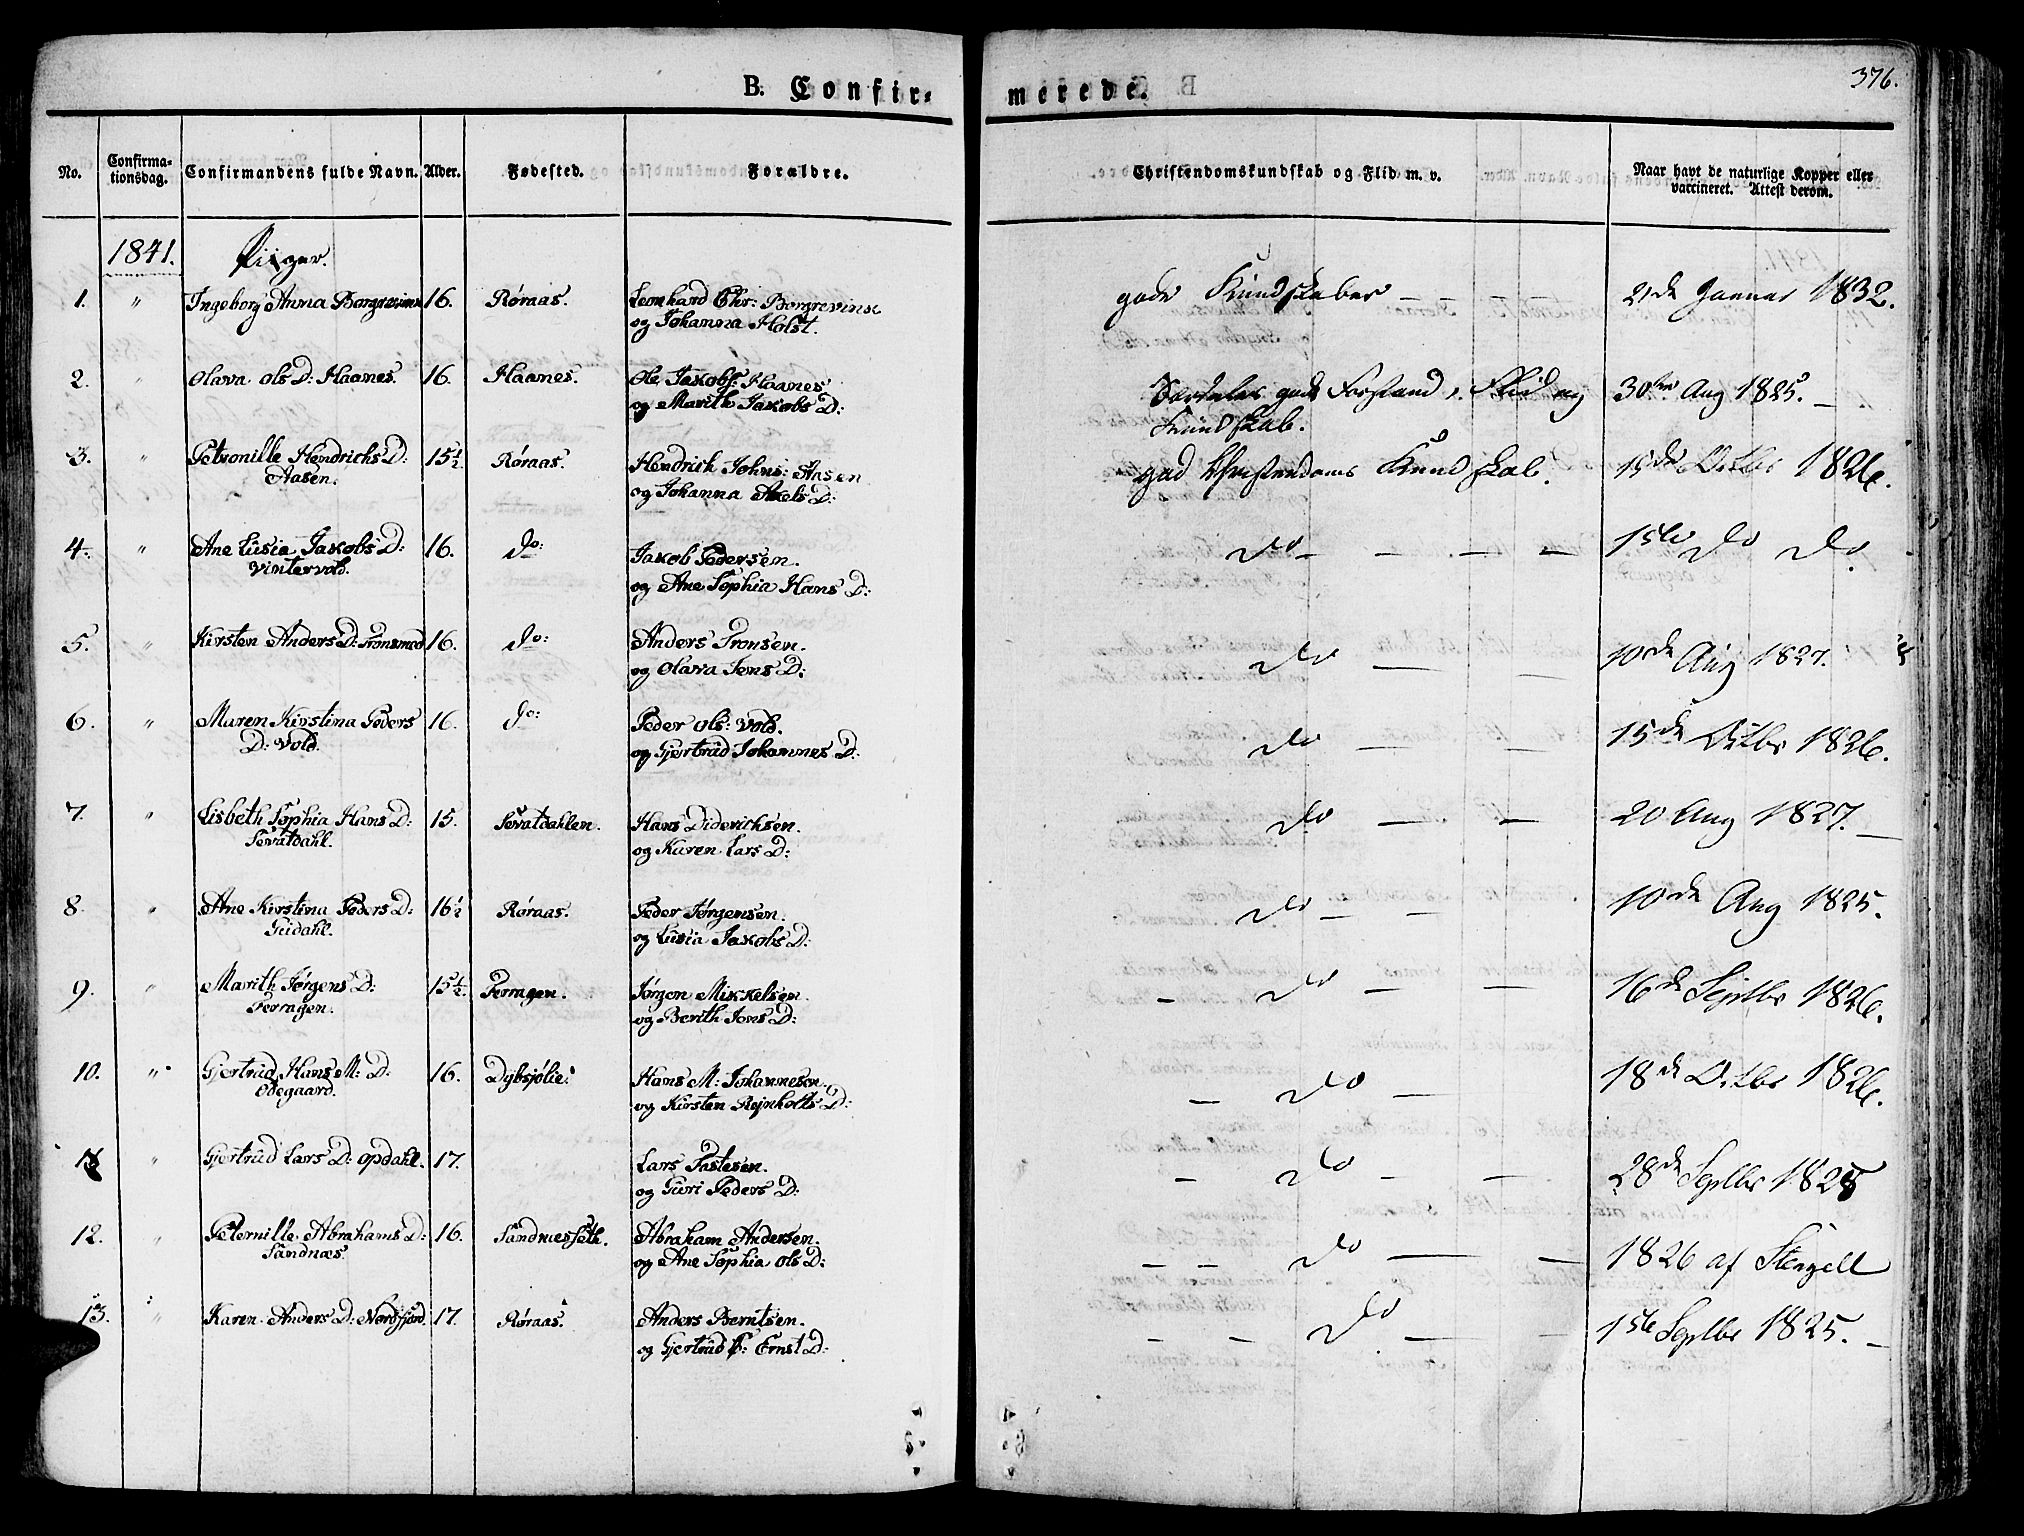 B. Confir-
merede.
376.
No.
Confirma-
tionsdag.
Confirmandens fulde Navn.
Alder.
Fødested.
Forældre.
Christendomskundskab og Flid m. v.
Naar havt de naturlige Kopper eller
vaccineret. Attest derom.
1841. Piger.
1. " Ingeborg Anna Borgrevink 16. Røraas. Leonhard Chr: Borgrevink gode Kundskaber — — — — 21de Januar 1832.
og Johanna Holst.
2. " Olava Ols D: Haanes. 16. Haanes. Ole Jakobs: Haanes gode Forstand, Flid og 30te Aug 1825. —
og Marith Jakobs D: Kundskab.
3. " Petronille Hendrichs D: 15½ Røraas. Hendrich Johns: Aasen god Christendoms Kundskab. 15de Octbr 1826.
Aasen. og Johanna Axels D:
4. " Ane Lusia Jakobs D: 16. do: Jakob Pedersen. Do — — — — 15de Do Do.
Vintervold. og Ane Sophia Hans D:
5. " Kirsten Anders D: Tronsmed 16. do: Anders Tronsen. Do — — 10de Aug 1827.
og Olava Jens D:
6. " Maren Kirstina Peders 16. do: Peder Ols: Vold. Do — — 15de Octbr 1826.
D: Vold. og Gjertrud Johannes D:
7. " Lisbeth Sophia Hans D: 15. Sevatdahlen. Hans Diderichsen. Do — — 20 Aug 1827. —
Sevatdahl. og Karen Lars D:
8. " Ane Kirstina Peders D: 16½ Røraas. Peder Jørgensen. Do — — 10de Aug 1825.
Gudahl. og Lusia Jakobs D:
9. " Marith Jørgens D: 15½ Ferragen. Jørgen Mikkelsen. — Do — — 16de Septbr 1826.
Ferragen. og Berith Jons D:
10. " Gjertrud Hans M: D: 16. Dybsjølie. Hans M: Johannesen. — Do — 18de Octbr 1826.
Ødegaard. og Kirsten Rejnholts D:
11 " Gjertrud Lars D: Opdahl. 17. Lars Tostesen. — Do — — 28de Septbr 1825
og Guri Peders D:
12. " Peternille Abrahams D: 16. Sandnesseth. Abraham Andersen. — — Do — — 1826 af Stengell
Sandnæs. og Ane Sophia Ols D:
13. " Karen Anders D: Nordfjord. 17. Røraas. Anders Berntsen. — — Do — — 1ste Septbr 1825. —
og Gjertrud Ernst D: